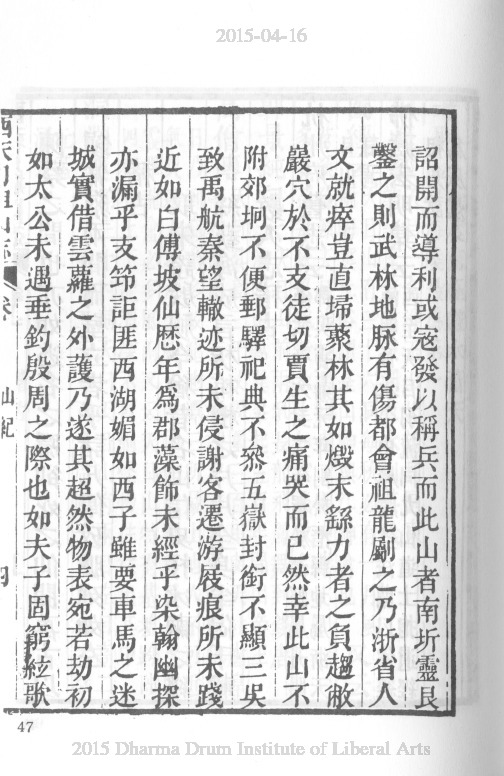 2015-04-16
詔開而導利或寇發以稱兵而此山者南圻靈艮
鑿之則武林地脉有傷都會祖龍劚之乃浙省人
文就瘁豈直埽藂林其如燬末繇力者之負趨敝
巖穴於不支徒切賈生之痛哭而已然幸此山不
附郊坰不便郵驛祀典不叅五嶽封銜不顯三吳
致禹航秦望轍迹所未侵謝客遷游屐痕所未踐
近如白傅坡仙歷年爲郡藻飾未經乎染翰幽探
亦漏乎支筇詎匪西湖媚如西子雖要車馬之迷
城實借雲蘿之外護乃遂其超然物表宛若劫初
如太公未遇垂釣殷周之際也如夫子固窮絃歌
卷 山紀 四
47
2015 Dharma Drum Institute of Liberal Arts